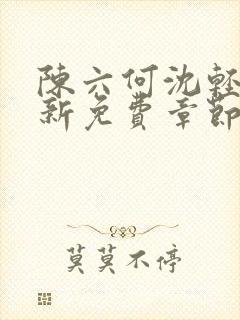 陳六何沈輕
新免費章節
莫莫不停